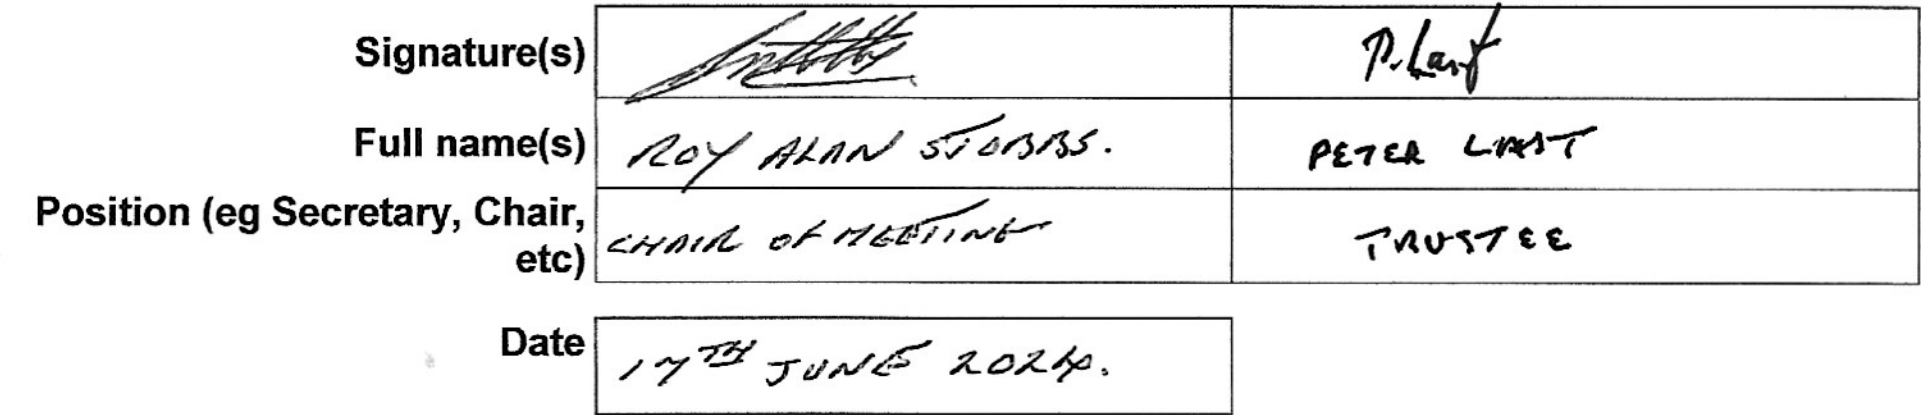 Signature(s) P. Last
Full name(s) ROY ALAN STOBBS. PETER LAST
Position (eg Secretary, Chair, etc) CHAIR OF MEETING TRUSTEE
Date 17TH JUNE 2024.